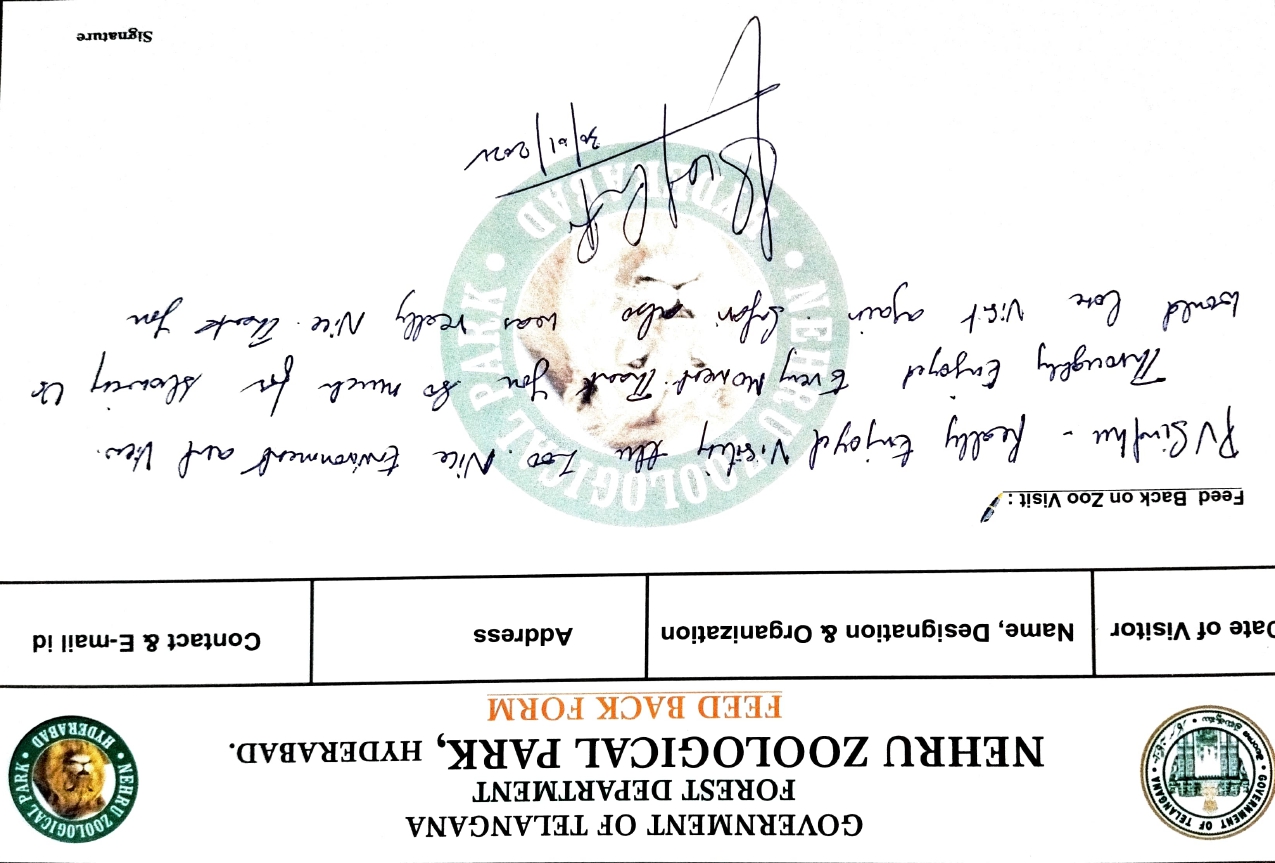 GOVERNMENT OF TELANGANA
FOREST DEPARTMENT
NEHRU ZOOLOGICAL PARK, HYDERABAD.
FEED BACK FORM
GOVERNMENT OF TELANGANA
NEHRU ZOOLOGICAL PARK • HYDERABAD •
Date of Visitor
Name, Designation & Organization
Address
Contact & E-mail id
Feed Back on Zoo Visit :
PV Sindhu - Really Enjoyed Visiting the Zoo. Nice Environment and View.
Throughly Enjoyed Every Moment. Thank you So much for showing Us
would love visit again. Safari also was really Nice. Thank you
NEHRU ZOOLOGICAL PARK • HYDERABAD •
30/01/2021
Signature